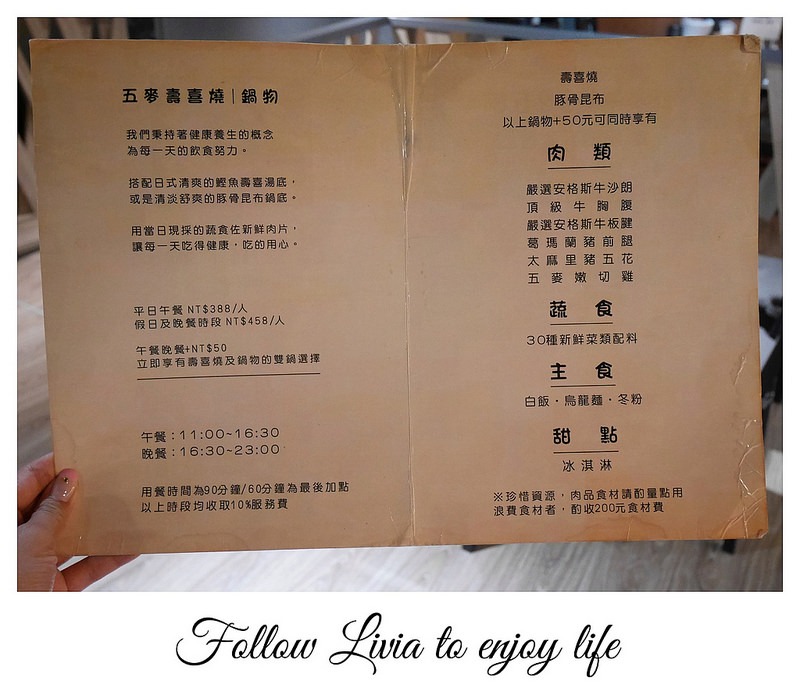 五麥壽喜燒|鍋物
我們秉持著健康養生的概念
為每一天的飲食努力。
搭配日式清爽的鰹魚壽喜湯底，
或是清淡舒爽的豚骨昆布鍋底。
用當日現採的蔬食佐新鮮肉片，
讓每一天吃得健康，吃的用心。
平日午餐 NT$388/人
假日及晚餐時段 NT$458/人
午餐晚餐+NT$50
立即享有壽喜燒及鍋物的雙鍋選擇
午餐：11:00~16:30
晚餐：16:30~23:00
用餐時間為90分鐘/60分鐘為最後加點
以上時段均收取10%服務費
壽喜燒
豚骨昆布
以上鍋物+50元可同時享有
肉 類
嚴選安格斯牛沙朗
頂級牛胸腹
嚴選安格斯牛板腱
葛瑪蘭豬前腿
太麻里豬五花
五麥嫩切雞
蔬 食
30種新鮮菜類配料
主 食
白飯・烏龍麵・冬粉
甜 點
冰淇淋
※珍惜資源，肉品食材請酌量點用
浪費食材者，酌收200元食材費
Follow Livia to enjoy life